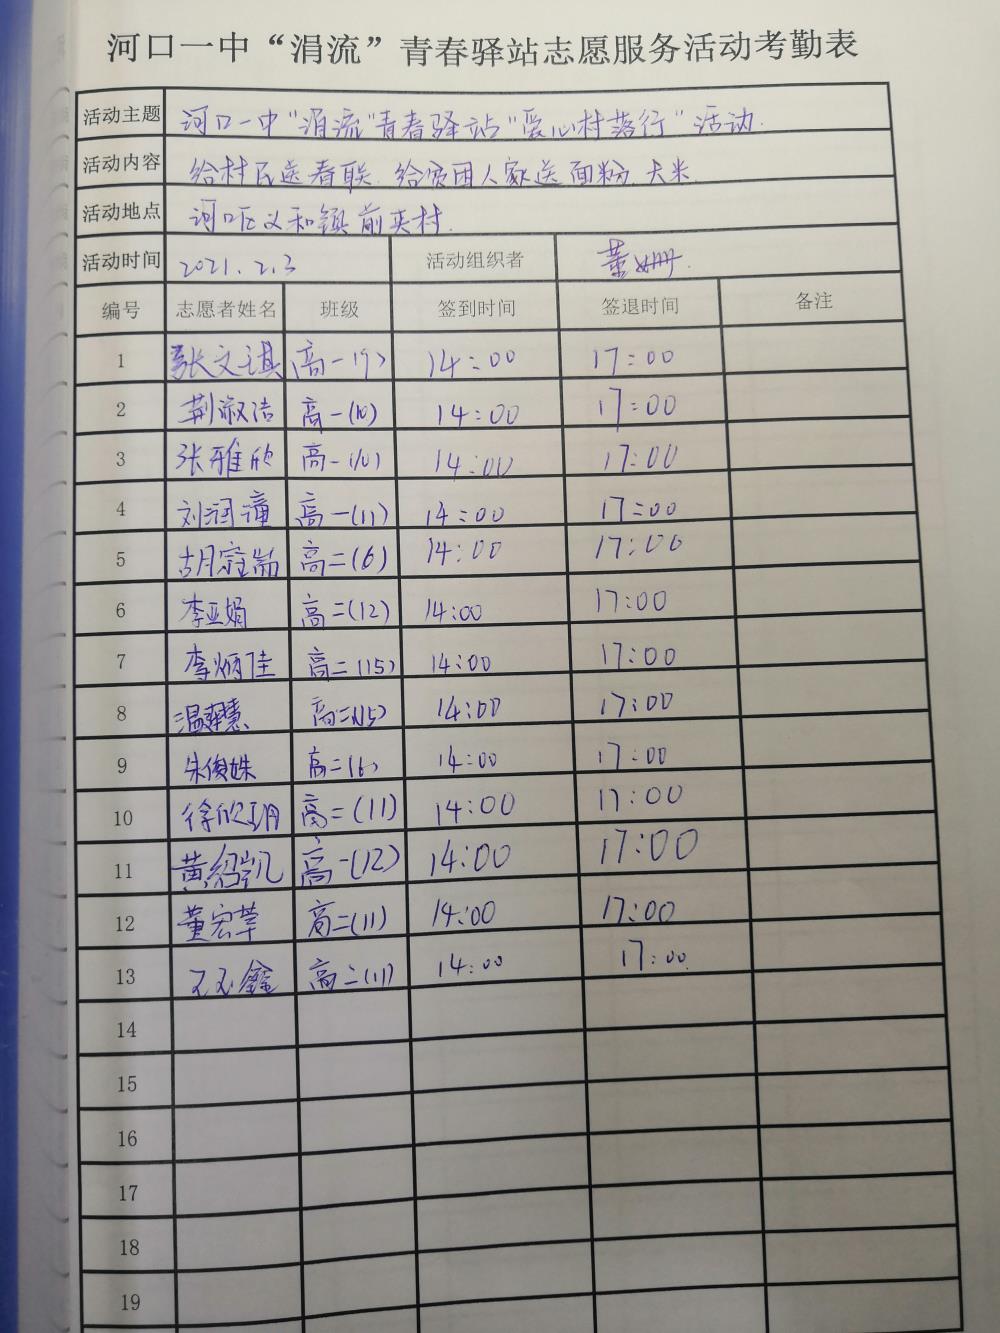 河口一中“涓流”青春驿站志愿服务活动考勤表
活动主题 河口一中“涓流”青春驿站“爱心村落行”活动.
活动内容 给村民送春联.给贫困人家送面粉.大米.
活动地点 河口区义和镇前夹村.
活动时间 2021.2.3 活动组织者 董姗.
编号 志愿者姓名 班级 签到时间 签退时间 备注
1 张文琪 高一(7) 14:00 17:00
2 荆淑洁 高一(10) 14:00 17:00
3 张雅欣 高一(10) 14:00 17:00
4 刘润潼 高一(11) 14:00 17:00
5 高二(6) 14:00 17:00
6 李亚娟 高二(12) 14:00 17:00
7 李炳佳 高二(15) 14:00 17:00
8 高二(15) 14:00 17:00
9 朱俊姝 高二(6) 14:00 17:00
10 徐欣玥 高二(11) 14:00 17:00
11 黄绍凯 高一(12) 14:00 17:00
12 董宏苹 高二(11) 14:00 17:00
13 高二(11) 14:00 17:00
14
15
16
17
18
19